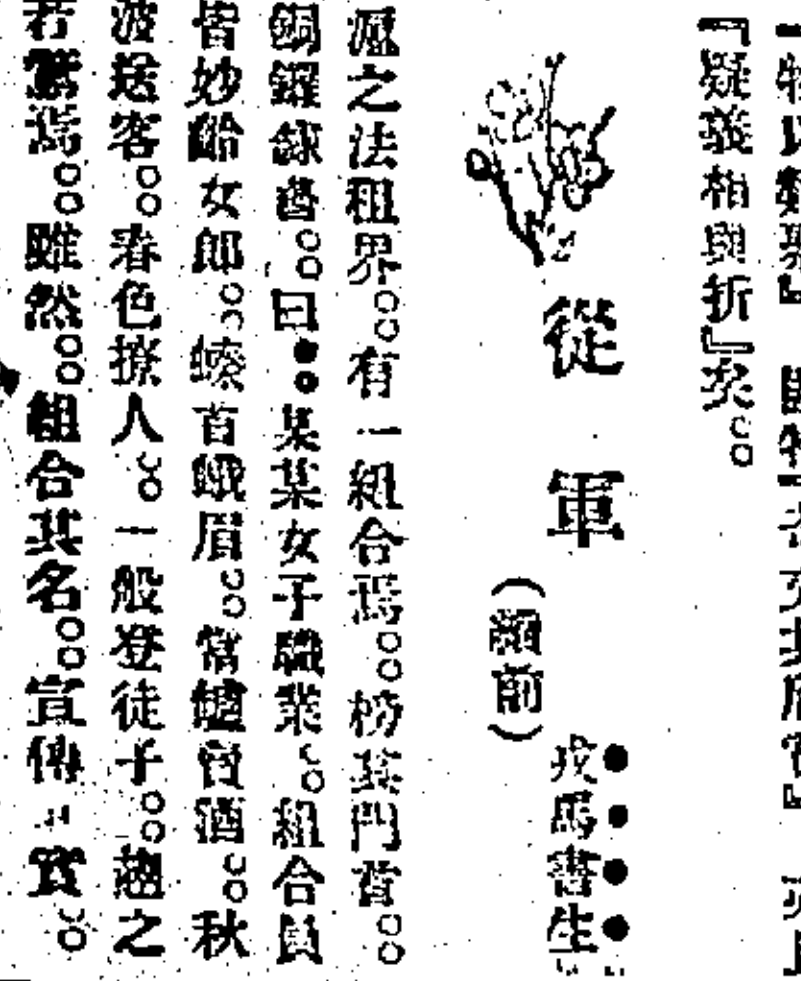 『疑義相與折』矣。
從軍
(續前)
戎馬書生
滬之法租界。有一組合焉。榜其門首。
銅鐶錄書。曰●●某某女子職業。組合員
皆妙齡女郎。螓首蛾眉。當罏賣酒。秋
波送客。春色撩人。一般登徒子。趨之
若鶩焉。雖然。組合其名。宣傳其實。